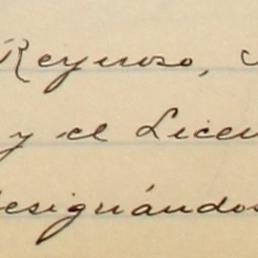 Reynoso,
y el Licen
designándos